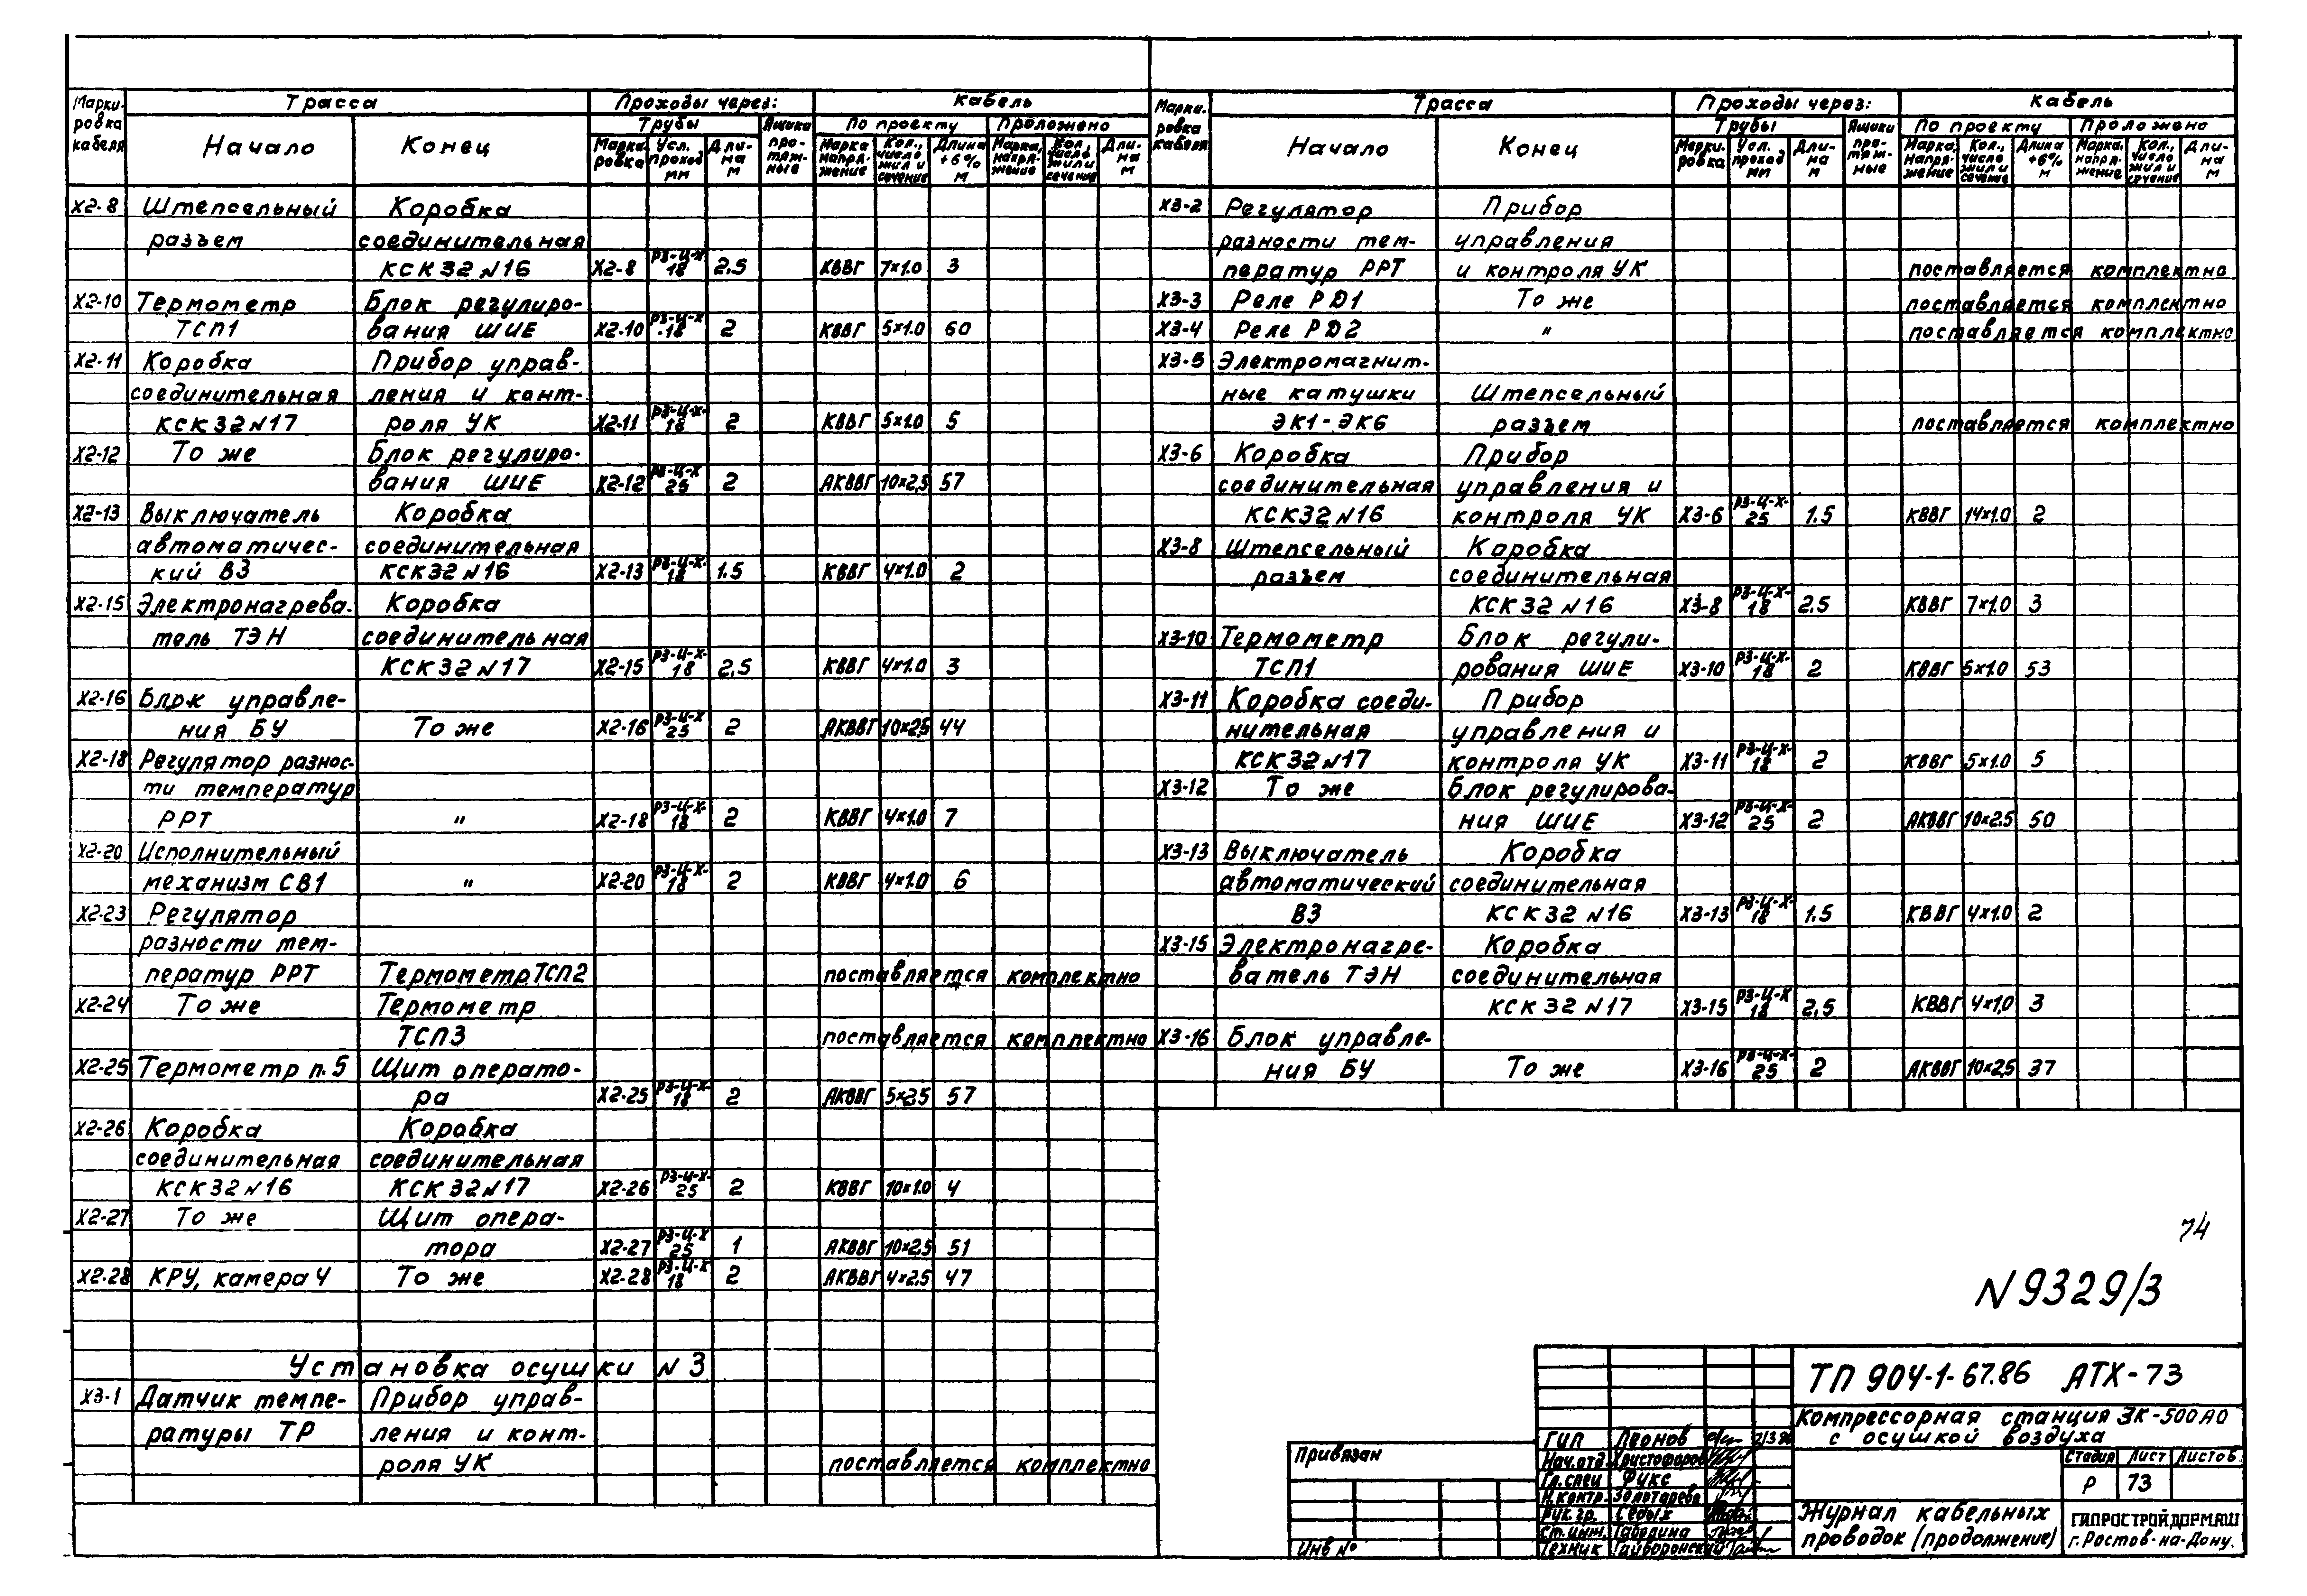 Марки-
ровка
кабеля
Трасса
Проходы через:
Кабель
Начало
Конец
Трубы
Ящики
про-
тяж-
ные
По проекту
Проложено
Марки-
ровка
Усл.
проход
мм
Дли-
на
м
Марка
напря-
жение
Кол.,
число
жил и
сечение
Длина
+6%
м
Марка,
напря-
жение
Кол,
число
жил и
сечение
Дли-
на
м
Х2-8 Штепсельный Коробка
разъем соединительная
КСК32 N16 Х2-8 РЗ-Ц-Х 18 2,5 КВВГ 7×1.0 3
Х2-10 Термометр Блок регулиро-
ТСП1 вания ШИЕ Х2-10 РЗ-Ц-Х-18 2 КВВГ 5×1.0 60
Х2-11 Коробка Прибор управ-
соединительная ления и конт-
КСК32 N17 роля УК Х2-11 РЗ-Ц-Х-18 2 КВВГ 5×1.0 5
Х2-12 То же Блок регулиро-
вания ШИЕ Х2-12 РЗ-Ц-Х 25 2 АКВВГ 10×2,5 57
Х2-13 Выключатель Коробка
автоматичес- соединительная
кий В3 КСК32 N16 Х2-13 РЗ-Ц-Х-18 1.5 КВВГ 4×1.0 2
Х2-15 Электронагрева- Коробка
тель ТЭН соединительная
КСК32 N17 Х2-15 РЗ-Ц-Х-18 2,5 КВВГ 4×1.0 3
Х2-16 Блок управле-
ния БУ То же Х2-16 РЗ-Ц-Х 25 2 АКВВГ 10×2,5 44
Х2-18 Регулятор разнос-
ти температур
РРТ " Х2-18 РЗ-Ц-Х-18 2 КВВГ 4×1.0 7
Х2-20 Исполнительный
механизм СВ1 " Х2-20 РЗ-Ц-Х-18 2 КВВГ 4×1.0 6
Х2-23 Регулятор
разности тем-
ператур РРТ Термометр ТСП2 поставляется комплектно
Х2-24 То же Термометр
ТСП3 поставляется комплектно
Х2-25 Термометр п.5 Щит операто-
ра Х2-25 РЗ-Ц-Х-18 2 АКВВГ 5×2,5 57
Х2-26 Коробка Коробка
соединительная соединительная
КСК32 N16 КСК32 N17 Х2-26 РЗ-Ц-Х-25 2 КВВГ 10×1.0 4
Х2-27 То же Щит опера-
тора Х2-27 РЗ-Ц-Х 25 1 АКВВГ 10×2,5 51
Х2-28 КРУ, камера 4 То же Х2-28 РЗ-Ц-Х 18 2 АКВВГ 4×2.5 47
Установка осушки N3
Х3-1 Датчик темпе- Прибор управ-
ратуры ТР ления и конт-
роля УК поставляется комплектно
Марки-
ровка
кабеля
Трасса
Проходы через:
Кабель
Начало
Конец
Трубы
Ящики
про-
тяж-
ные
По проекту
Проложено
Марки-
ровка
Усл.
проход
мм
Дли-
на
м
Марка,
напря-
жение
Кол.,
число
жил и
сечение
Длина
+6%
м
Марка,
напря-
жение
Кол.,
число
жил и
сечение
Дли-
на
м
Х3-2 Регулятор Прибор
разности тем- управления
ператур РРТ и контроля УК поставляется комплектно
Х3-3 Реле РД1 То же поставляется комплектно
Х3-4 Реле РД2 " поставляется комплектно
Х3-5 Электромагнит-
ные катушки Штепсельный
ЭК1-ЭК6 разъем поставляется комплектно
Х3-6 Коробка Прибор
соединительная управления и
КСК32 N16 контроля УК Х3-6 РЗ-Ц-Х-25 1.5 КВВГ 14×1.0 2
Х3-8 Штепсельный Коробка
разъем соединительная
КСК32 N16 Х3-8 РЗ-Ц-Х-18 2.5 КВВГ 7×1.0 3
Х3-10 Термометр Блок регули-
ТСП1 рования ШИЕ Х3-10 РЗ-Ц-Х-18 2 КВВГ 5×1.0 53
Х3-11 Коробка соеди- Прибор
нительная управления и
КСК32 N17 контроля УК Х3-11 РЗ-Ц-Х-18 2 КВВГ 5×1.0 5
Х3-12 То же Блок регулирова-
ния ШИЕ Х3-12 РЗ-Ц-Х-25 2 АКВВГ 10×2.5 50
Х3-13 Выключатель Коробка
автоматический соединительная
В3 КСК32 N16 Х3-13 РЗ-Ц-Х-18 1.5 КВВГ 4×1.0 2
Х3-15 Электронагре- Коробка
ватель ТЭН соединительная
КСК32 N17 Х3-15 РЗ-Ц-Х 18 2,5 КВВГ 4×1,0 3
Х3-16 Блок управле-
ния БУ То же Х3-16 РЗ-Ц-Х-25 2 АКВВГ 10×2,5 37
74
N9329/3
ТП 904-1-67.86 АТХ-73
Компрессорная станция 3К-500АО
с осушкой воздуха
Стадия Лист Листов
Р 73
Журнал кабельных
проводок (продолжение)
ГИПРОСТРОЙДОРМАШ
г. Ростов-на-Дону.
ГИП Леонов
Нач.отд. Христофоров
Гл.спец Фукс
Н.контр. Золотарева
Рук.гр. Седых
Ст.инж. Габелина
Техник Гайворонский
Привязан
Инв №